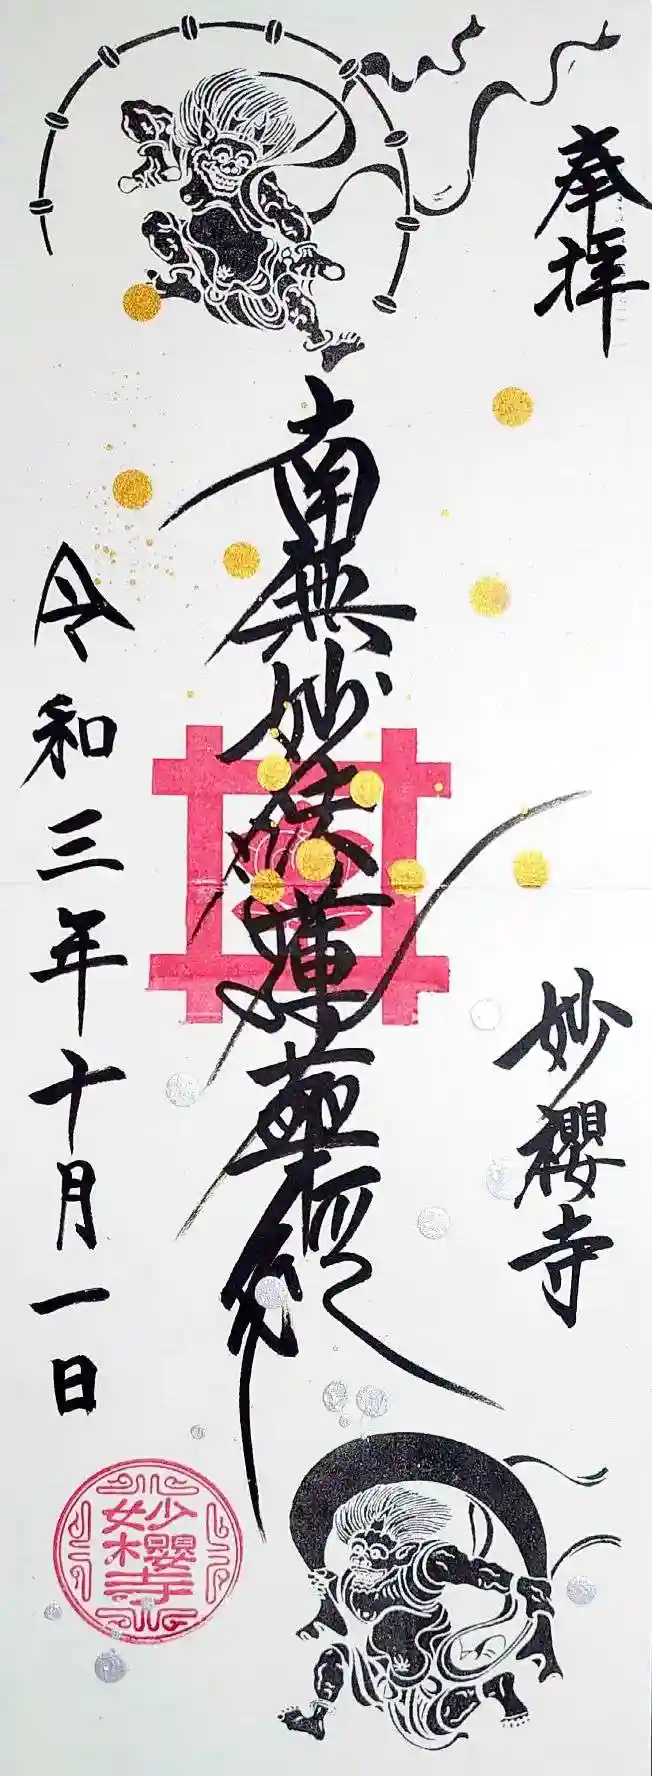 奉拝
南無妙法蓮華経
妙櫻寺
令和三年十月一日
妙櫻寺